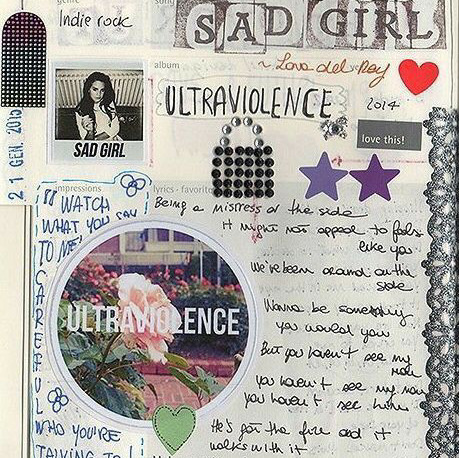 genre
song
SAD GIRL
Indie rock
album
~ Lana del Rey
ULTRAVIOLENCE
2014
love this!
SAD GIRL
21 GEN. 2015
impressions
lyrics - favorite
"WATCH
WHAT YOU SAY
TO ME
CAREFUL
WHO YOU'RE
TALKING TO!
ULTRAVIOLENCE
Being a mistress on the side
it might not appeal to fools
like you
We've been around on the
side
Wanna be something
you would you
But you haven't see my
man
you haven't see my man
you haven't see him
He's got the fire and it
walks with it